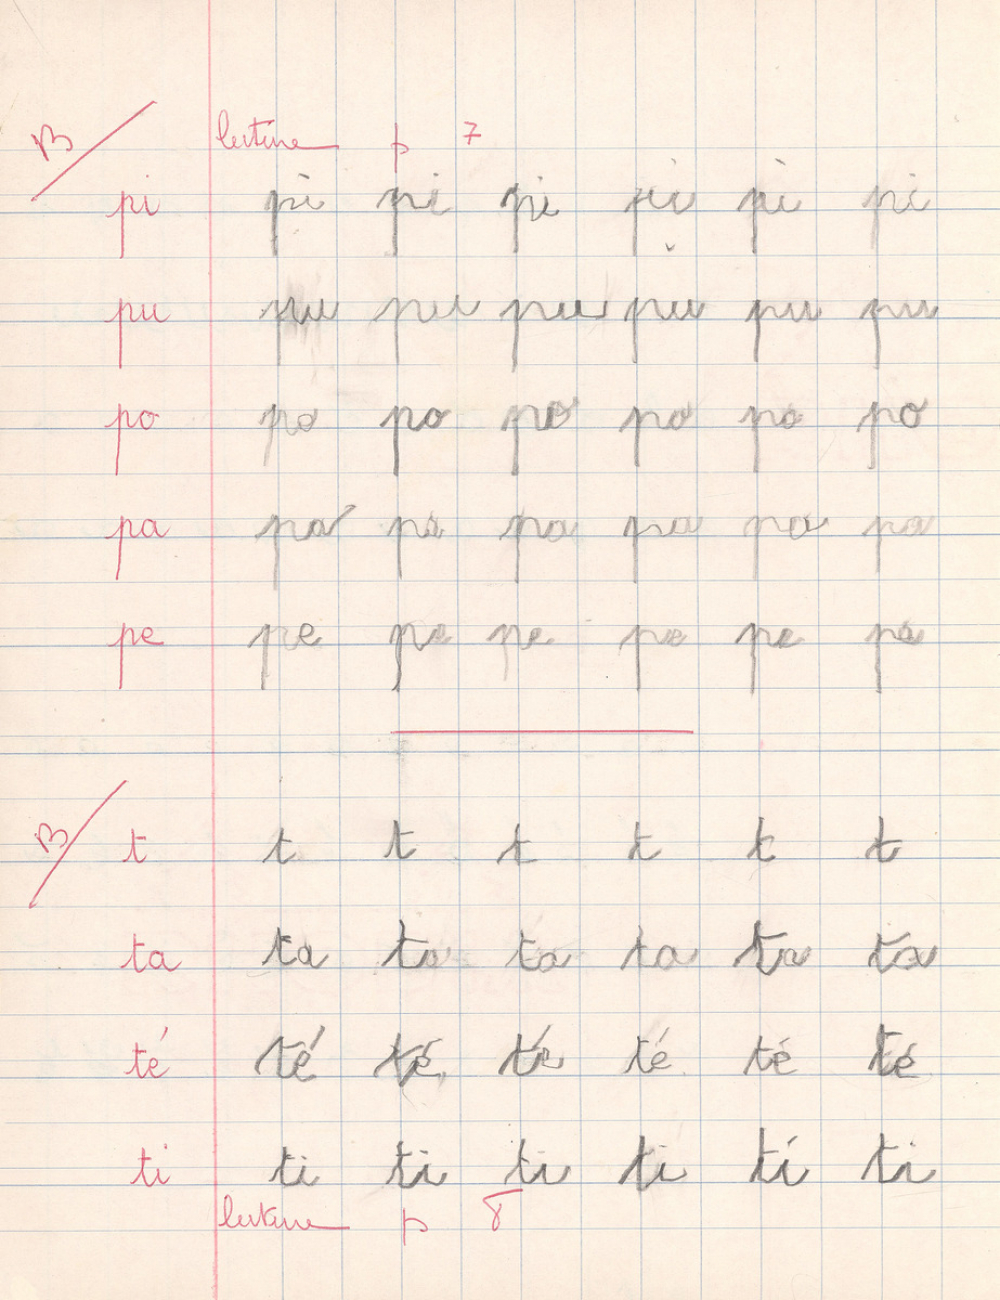 B
lecture p 7
pi pi pi pi pi pi pi
pu pu pu pu pu pu pu
po po po po po po po
pa pa pa pa pa pa pa
pe pe pe pe pe pe pe
B
t t t t t t t
ta ta ta ta ta ta ta
té té té té té té té
ti ti ti ti ti ti ti
lecture p 8